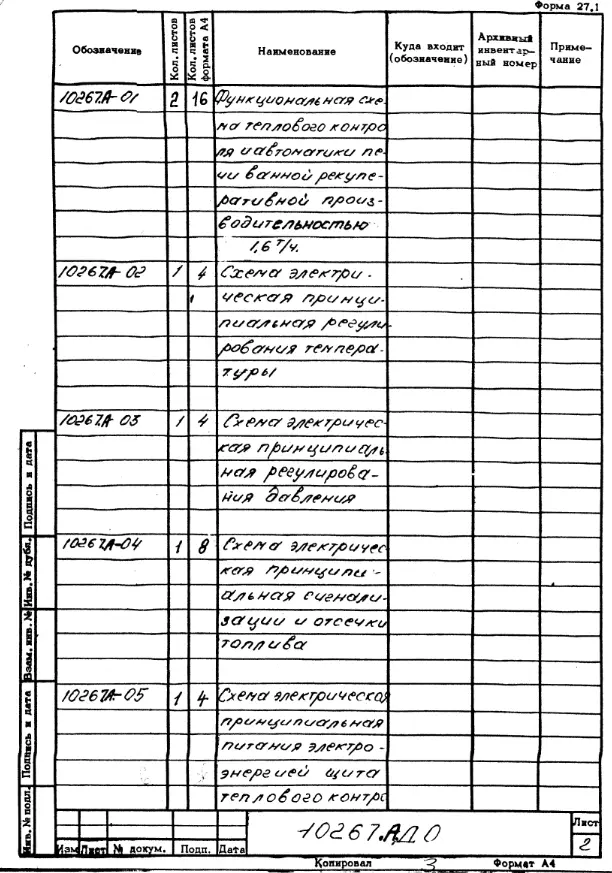 Форма 27.1
Обозначение
Кол. листов
Кол. листов формата А4
Наименование
Куда входит (обозначение)
Архивный инвентарный номер
Примечание
10267.А-01 2 16 Функциональная схе-
ма теплового контро
ля и автоматики пе-
чи ванной рекупе-
ративной произ-
водительностью
1,6 т/ч.
10267.А-02 1 4 Схема электри-
ческая принци-
пиальная регули-
рования темпера-
туры
10267.А-03 1 4 Схема электричес-
кая принципиаль
ная регулирова-
ния давления
10267.А-04 1 8 Схема электричес
кая принципи-
альная сигнали-
зации и отсечки
топлива
10267.А-05 1 4 Схема электрическая
принципиальная
питания электро-
энергией щита
теплового контро
Подпись и дата
Инв. № дубл.
Взам. инв. №
Подпись и дата
Инв. № подл.
10267.АДО
Лист
2
Изм Лист № докум. Подп. Дата
Копировал 3 Формат А4